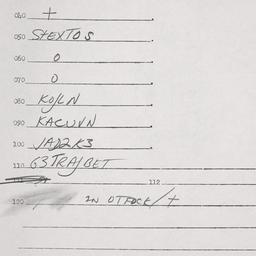 040 +
050 STEXTOS
060 0
070 0
080 KO/LN
090 KACUVN
100 JAD2K3
110 G3TRAJBET
112
120 IN OTFOCK/+